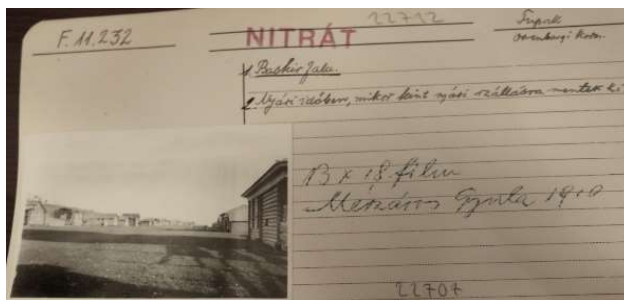 F. 11.232
NITRÁT
22712
Tupak
orenburgi korm.
1. Baskir falu.
2. Nyári időben, mikor kint nyári szállásra mentek ki
13 x 18 film
Mészáros Gyula 1910
22707